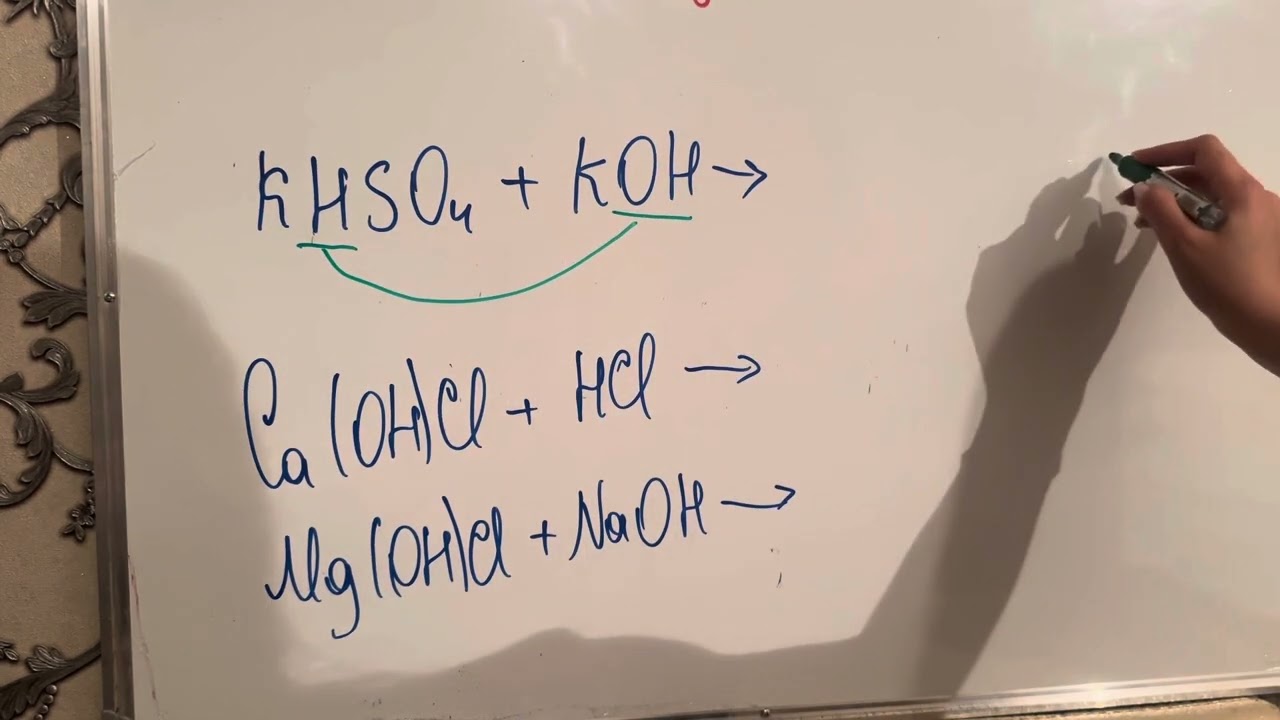 KHSO₄ + KOH →
Ca(OH)Cl + HCl →
Mg(OH)Cl + NaOH →